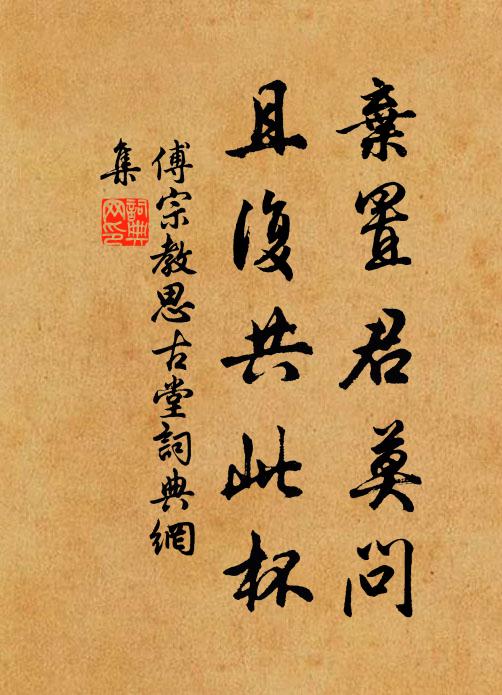 棄置君莫問
且復共此杯
傅宗教思古堂詞典網
集
詞典
网印